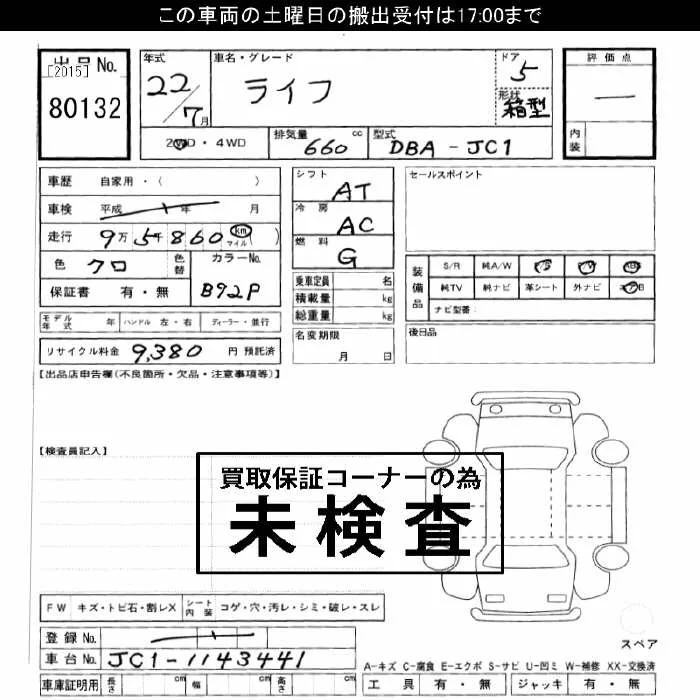 この車両の土曜日の搬出受付は17:00まで
出品No.
[2015]
80132
年式 22/7月
車名・グレード ライフ
ドア 5
形状 箱型
評価点 —
内装
2WD・4WD
排気量 660 cc
型式 DBA-JC1
車歴 自家用・( )
車検 平成 年 月
走行 9万5千860 km マイル ( )
色 クロ 色替
カラーNo. B92P
保証書 有・無
シフト AT
冷房 AC
燃料 G
乗車定員 名
積載量 kg
総重量 kg
名変期限 月 日
セールスポイント
装備品
S/R 純A/W P/S P/W ABS
純TV 純ナビ 革シート 外ナビ エアB
ナビ型番
後日品
モデル年式 年 ハンドル 左・右 ディーラー・並行
リサイクル料金 9,380 円 預託済
【出品店申告欄(不良箇所・欠品・注意事項等)】
【検査員記入】
買取保証コーナーの為
未検査
FW キズ・トビ石・割レX シート内装 コゲ・穴・汚レ・シミ・破レ・スレ
登録No.
車台No. JC1-1143441
スペア
A-キズ C-腐食 E-エクボ S-サビ U-凹ミ W-補修 XX-交換済
車庫証明用 長さ cm 幅 cm 高さ cm
工具 有・無 ジャッキ 有・無